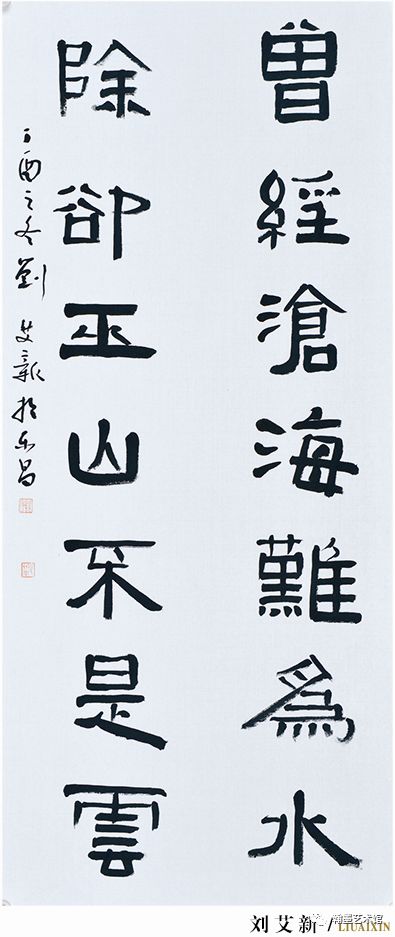 曾經滄海難爲水
除卻巫山不是雲
丁酉之冬劉艾新於乐昌
刘艾新 / LIUAIXIN
瀚墨艺术馆